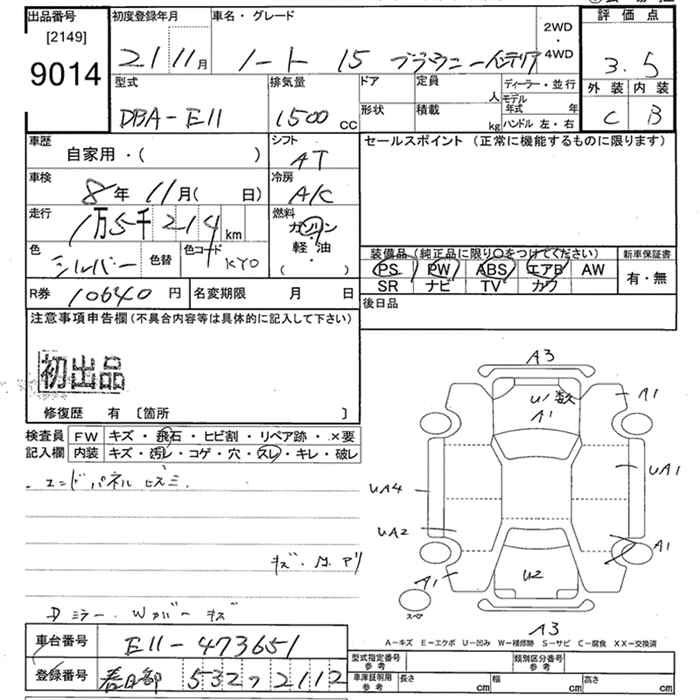 出品番号
[2149]
9014
初度登録年月
21 11月
車名・グレード
ノート 15 ブラウニーインテリア
2WD
4WD
評価点
3.5
外装 内装
C B
型式
DBA-E11
排気量
1500 CC
ドア
定員
人
形状
積載
kg
ディーラー・並行
モデル年式 年
ハンドル 左・右
車歴
自家用・( )
シフト
AT
セールスポイント (正常に機能するものに限ります)
車検
8年 11月( 日)
冷房
A/C
走行
1万5千214 km
燃料
ガソリン
軽・油
( )
色
シルバー
色替
色コード
KY0
装備品(純正品に限り○をつけてください)
新車保証書
PS PW ABS エアB AW
SR ナビ TV カワ
有・無
R券 10640 円
名変期限 月 日
後日品
注意事項申告欄(不具合内容等は具体的に記入して下さい)
初出品
修復歴 有 [箇所 ]
検査員
記入欄
FW キズ・飛石・ヒビ割・リペア跡・×要
内装 キズ・汚レ・コゲ・穴・スレ・キレ・破レ
エンドパネル ヒズミ
キズ・凹 アリ
Dミラー・Wカバー キズ
A3
U1 数
A1
A1
UA1
UA4
UA2
A1
A1
U2
スペア
A3
A=キズ E=エクボ U=凹み W=補修跡 S=サビ C=腐食 XX=交換済
車台番号
E11-473651
登録番号
春日部 532 ア 2112
型式指定番号
参考
類別区分番号
参考
車庫証明用
参考
長さ cm
幅 cm
高さ cm